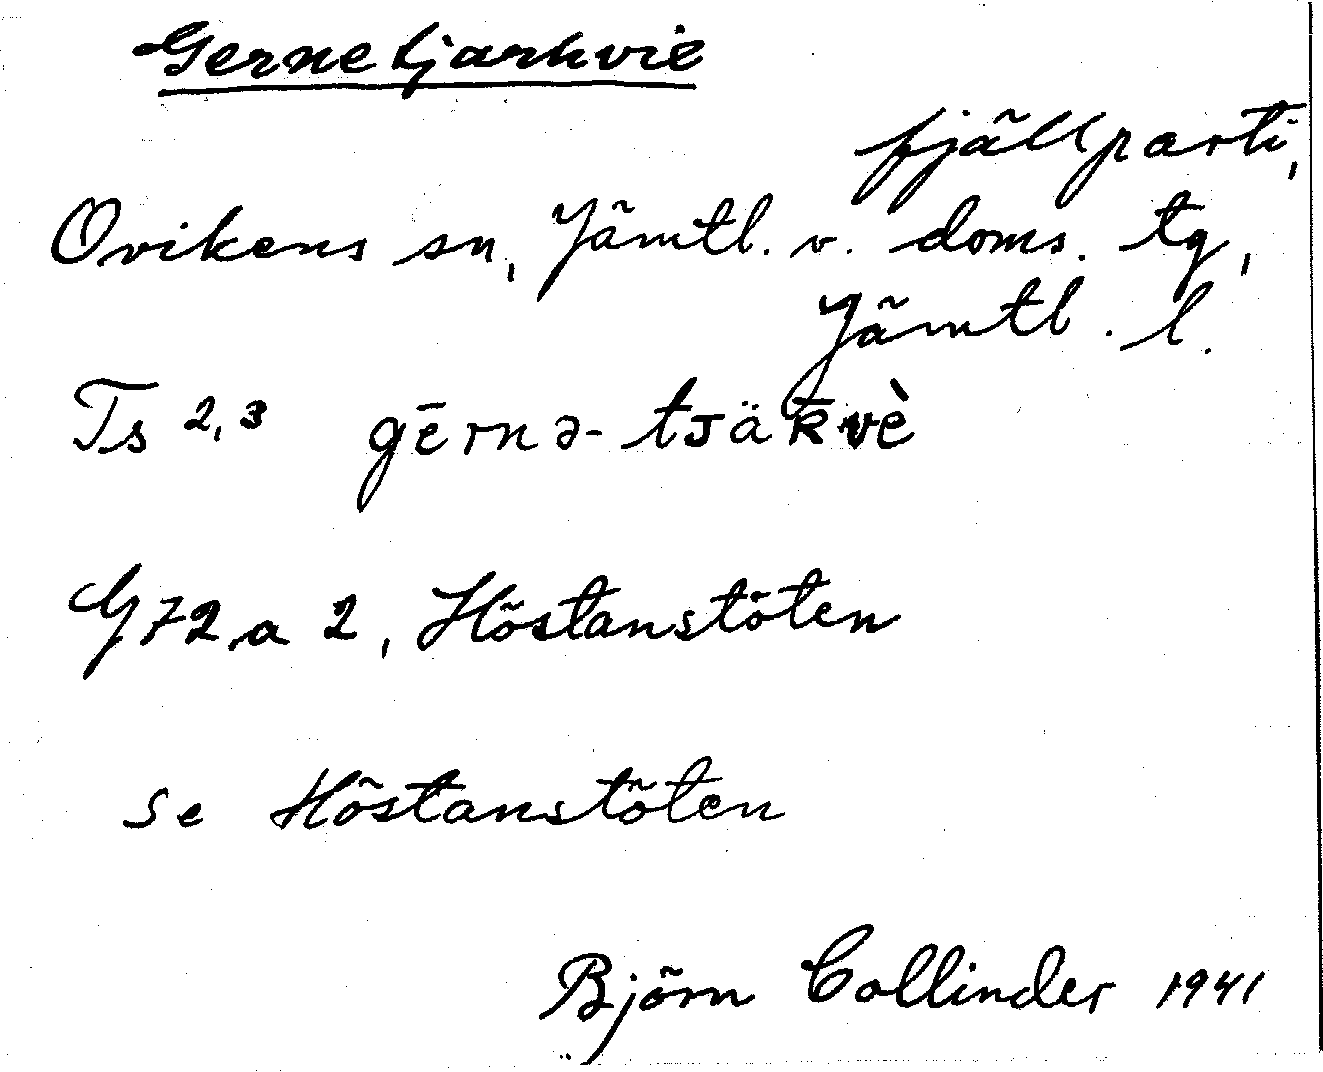 Gernetjarkvie
fjällparti,
Ovikens sn, Jämtl. v. doms. tg,
Jämtl. l.
Ts 2,3 gērnə-tsäk̄vè
G 72, a 2, Höstanstöten
se Höstanstöten
Björn Collinder 1941